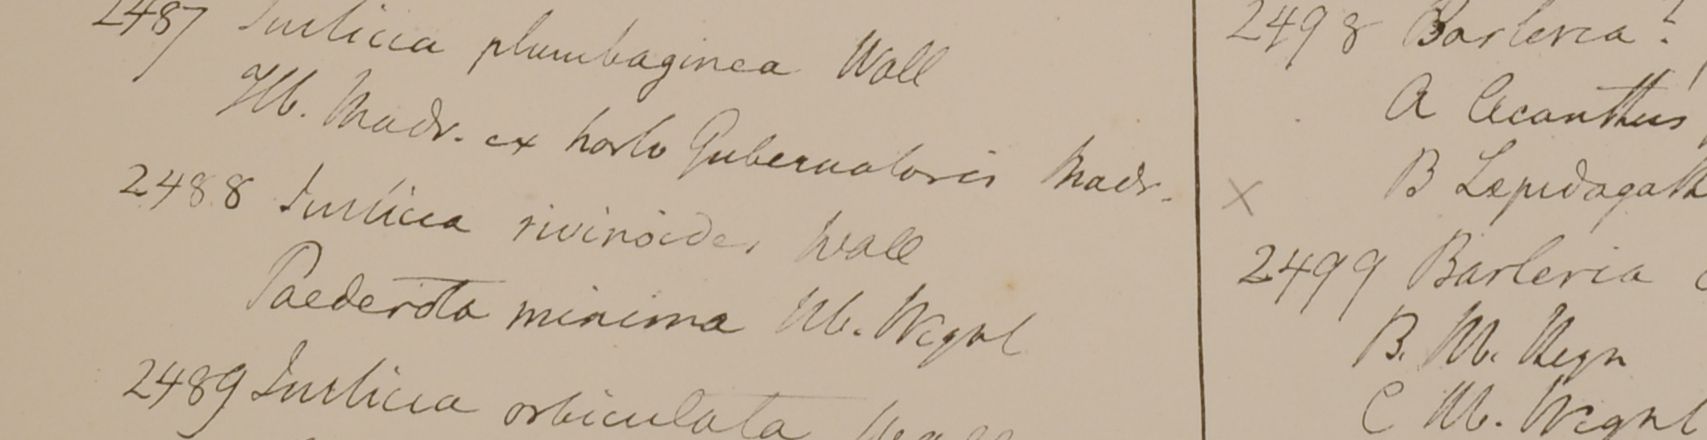 2487 Justicia plumbaginea Wall
Hb. Madr. ex horto Gubernatoris Madr.
2488 Justicia rivinoides Wall
Paederota minima Hb. Wight
2489 Justicia orbiculata Wall
2498 Barleria?
A Acanthus
B Lepidagath
X
2499 Barleria
B. Hb. Heyn
C Hb. Wight